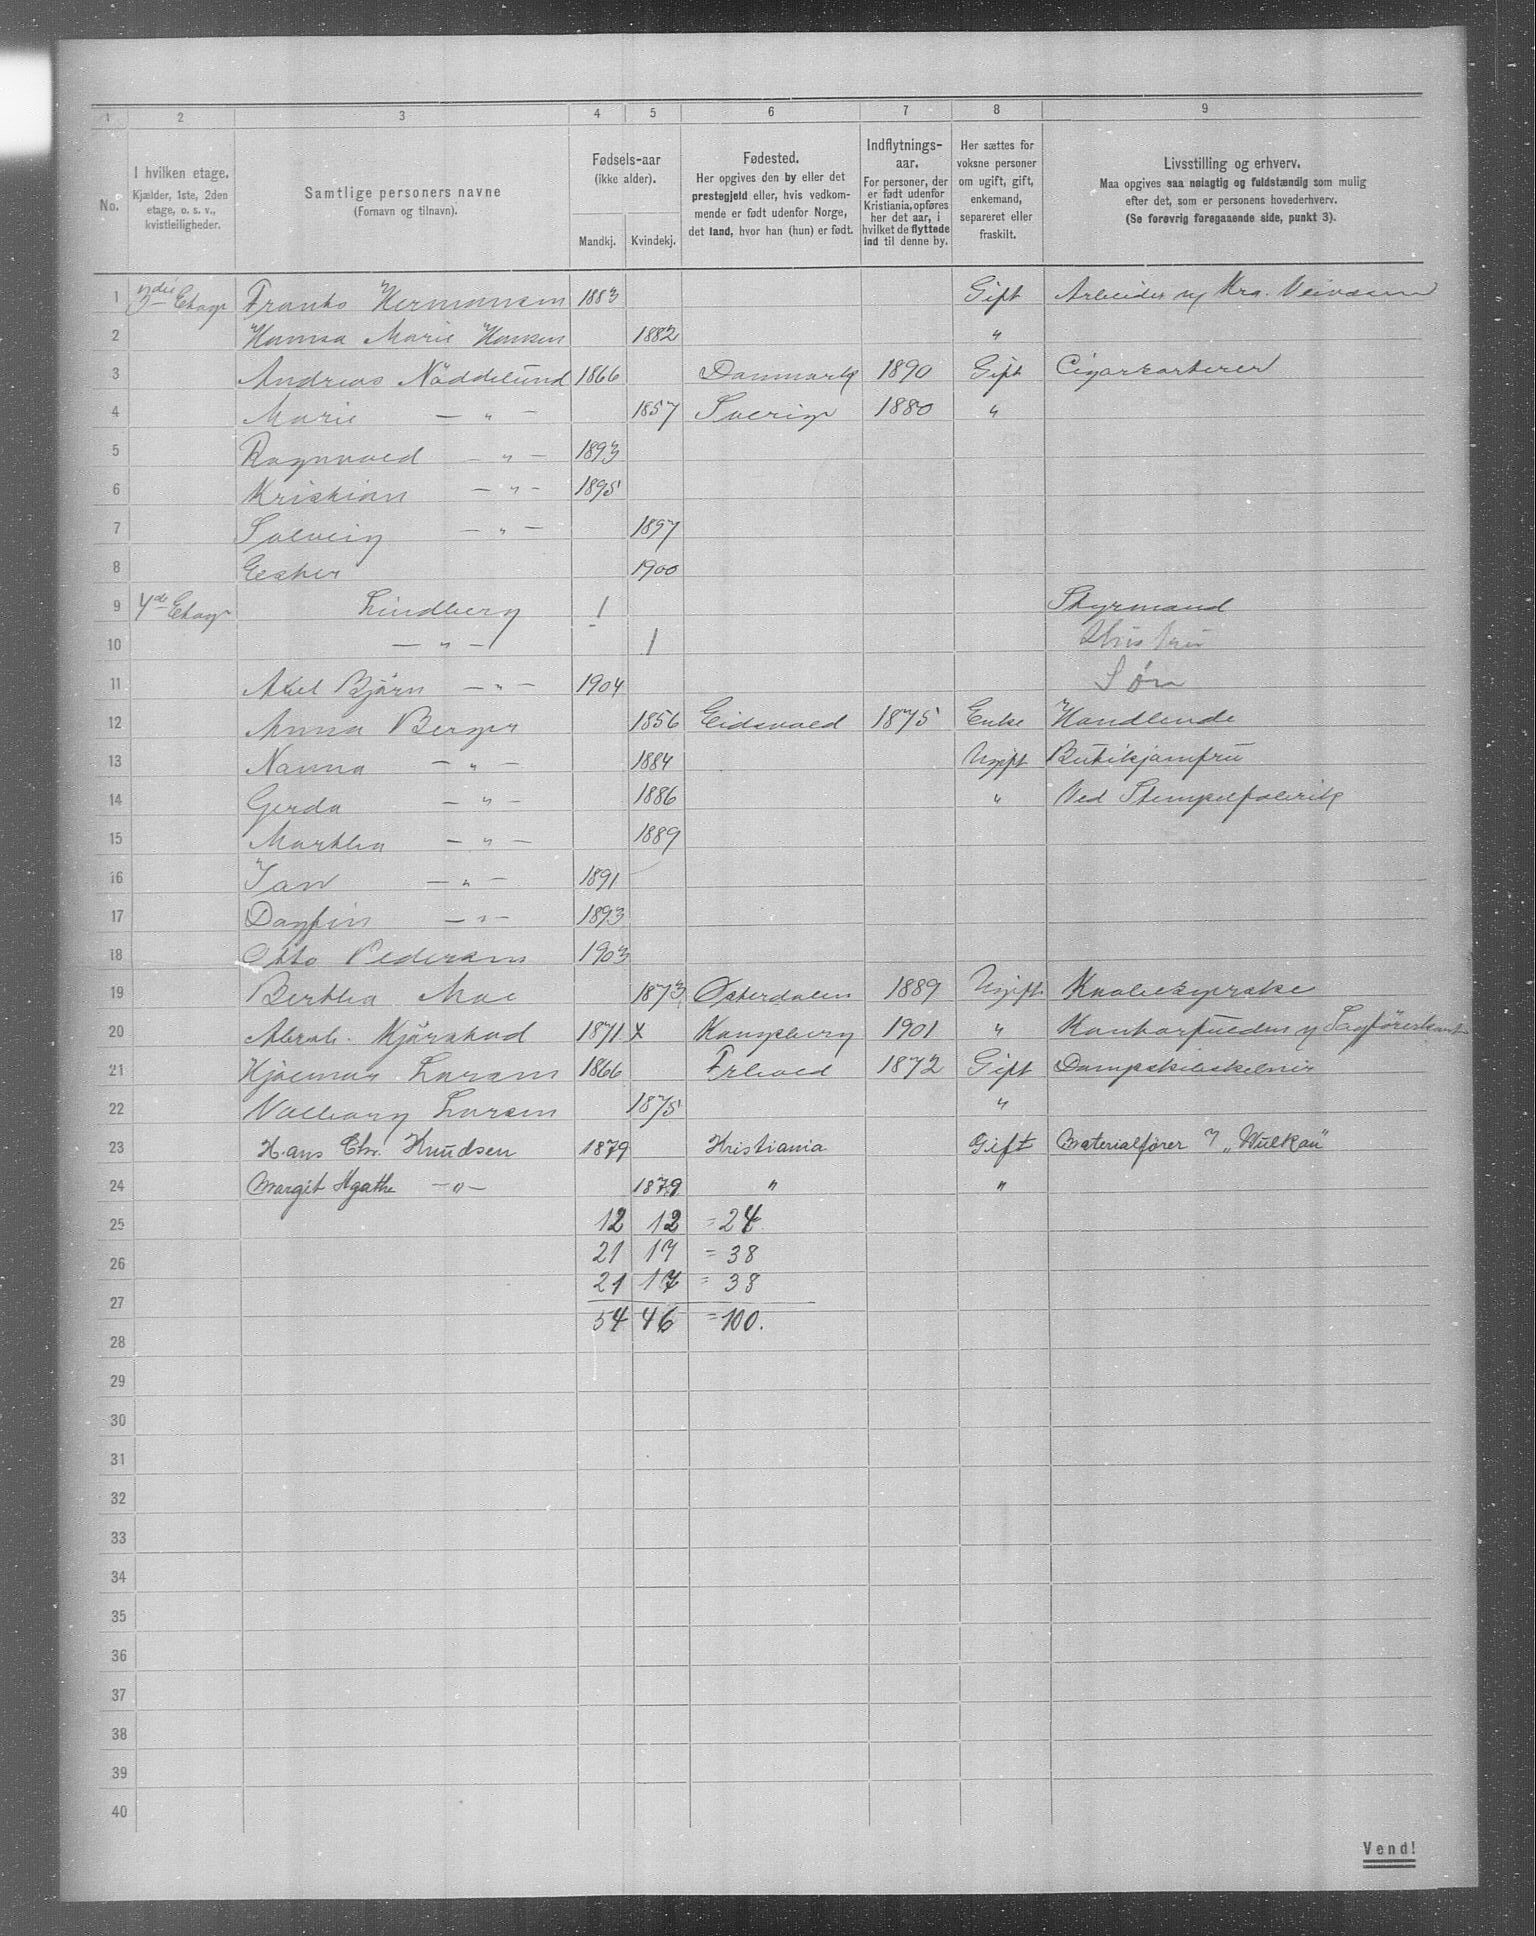 1 2 3 4 5 6 7 8 9
No.
I hvilken etage.
Kjælder, 1ste, 2den
etage, o. s. v.,
kvistleiligheder.
Samtlige personers navne
(Fornavn og tilnavn).
Fødsels-aar
(ikke alder).
Mandkj. Kvindekj.
Fødested.
Her opgives den by eller det
prestegjeld eller, hvis vedkom-
mende er født udenfor Norge,
det land, hvor han (hun) er født.
Indflytnings-
aar.
For personer, der
er født udenfor
Kristiania, opføres
her det aar, i
hvilket de flyttede
ind til denne by.
Her sættes for
voksne personer
om ugift, gift,
enkemand,
separeret eller
fraskilt.
Livsstilling og erhverv.
Maa opgives saa nøiagtig og fuldstændig som mulig
efter det, som er personens hovederhverv.
(Se forøvrig foregaaende side, punkt 3).
1 3die Etage Frants Hermansen 1883 Gift Arbeider v Kra. Veivæsen
2 Hanna Marie Hansen 1882 "
3 Andreas Nöddelund 1866 Danmark 1890 Gift Cigarsorterer
4 Marie — " — 1857 Sverige 1880 "
5 Ragnvald — " — 1893
6 Kristian — " — 1895
7 Solveig — " — 1897
8 Esther 1900
9 4de Etage Lindberg 1 Styrmand
10 — " — 1 Hustru
11 Axel Bjärn — " — 1904 Søn
12 Anna Berger 1856 Eidsvold 1875 Enke Handlende
13 Nanna — " — 1884 Ugift Butikjomfru
14 Gerda — " — 1886 " Ved Stempelfabrik
15 Martha — " — 1889
16 Jan — " — 1891
17 Dagfin — " — 1893
18 Otto Pedersen 1903
19 Bertha Moe 1873 Østerdalen 1889 Ugift
20 Abrah. Kjörstad 1871 x Kongsberg 1901 "
21 Hjalmar Larsen 1866 1872 Gift
22 Valborg Larsen 1875 "
23 Hans Chr. Knudsen 1879 Kristiania Gift Materialfører v „Wulkan"
24 Margit Agathe — " — 1879 " "
25 12 12 = 24.
26 21 17 = 38
27 21 17 = 38
28 54 46 = 100.
29
30
31
32
33
34
35
36
37
38
39
40
Vend!